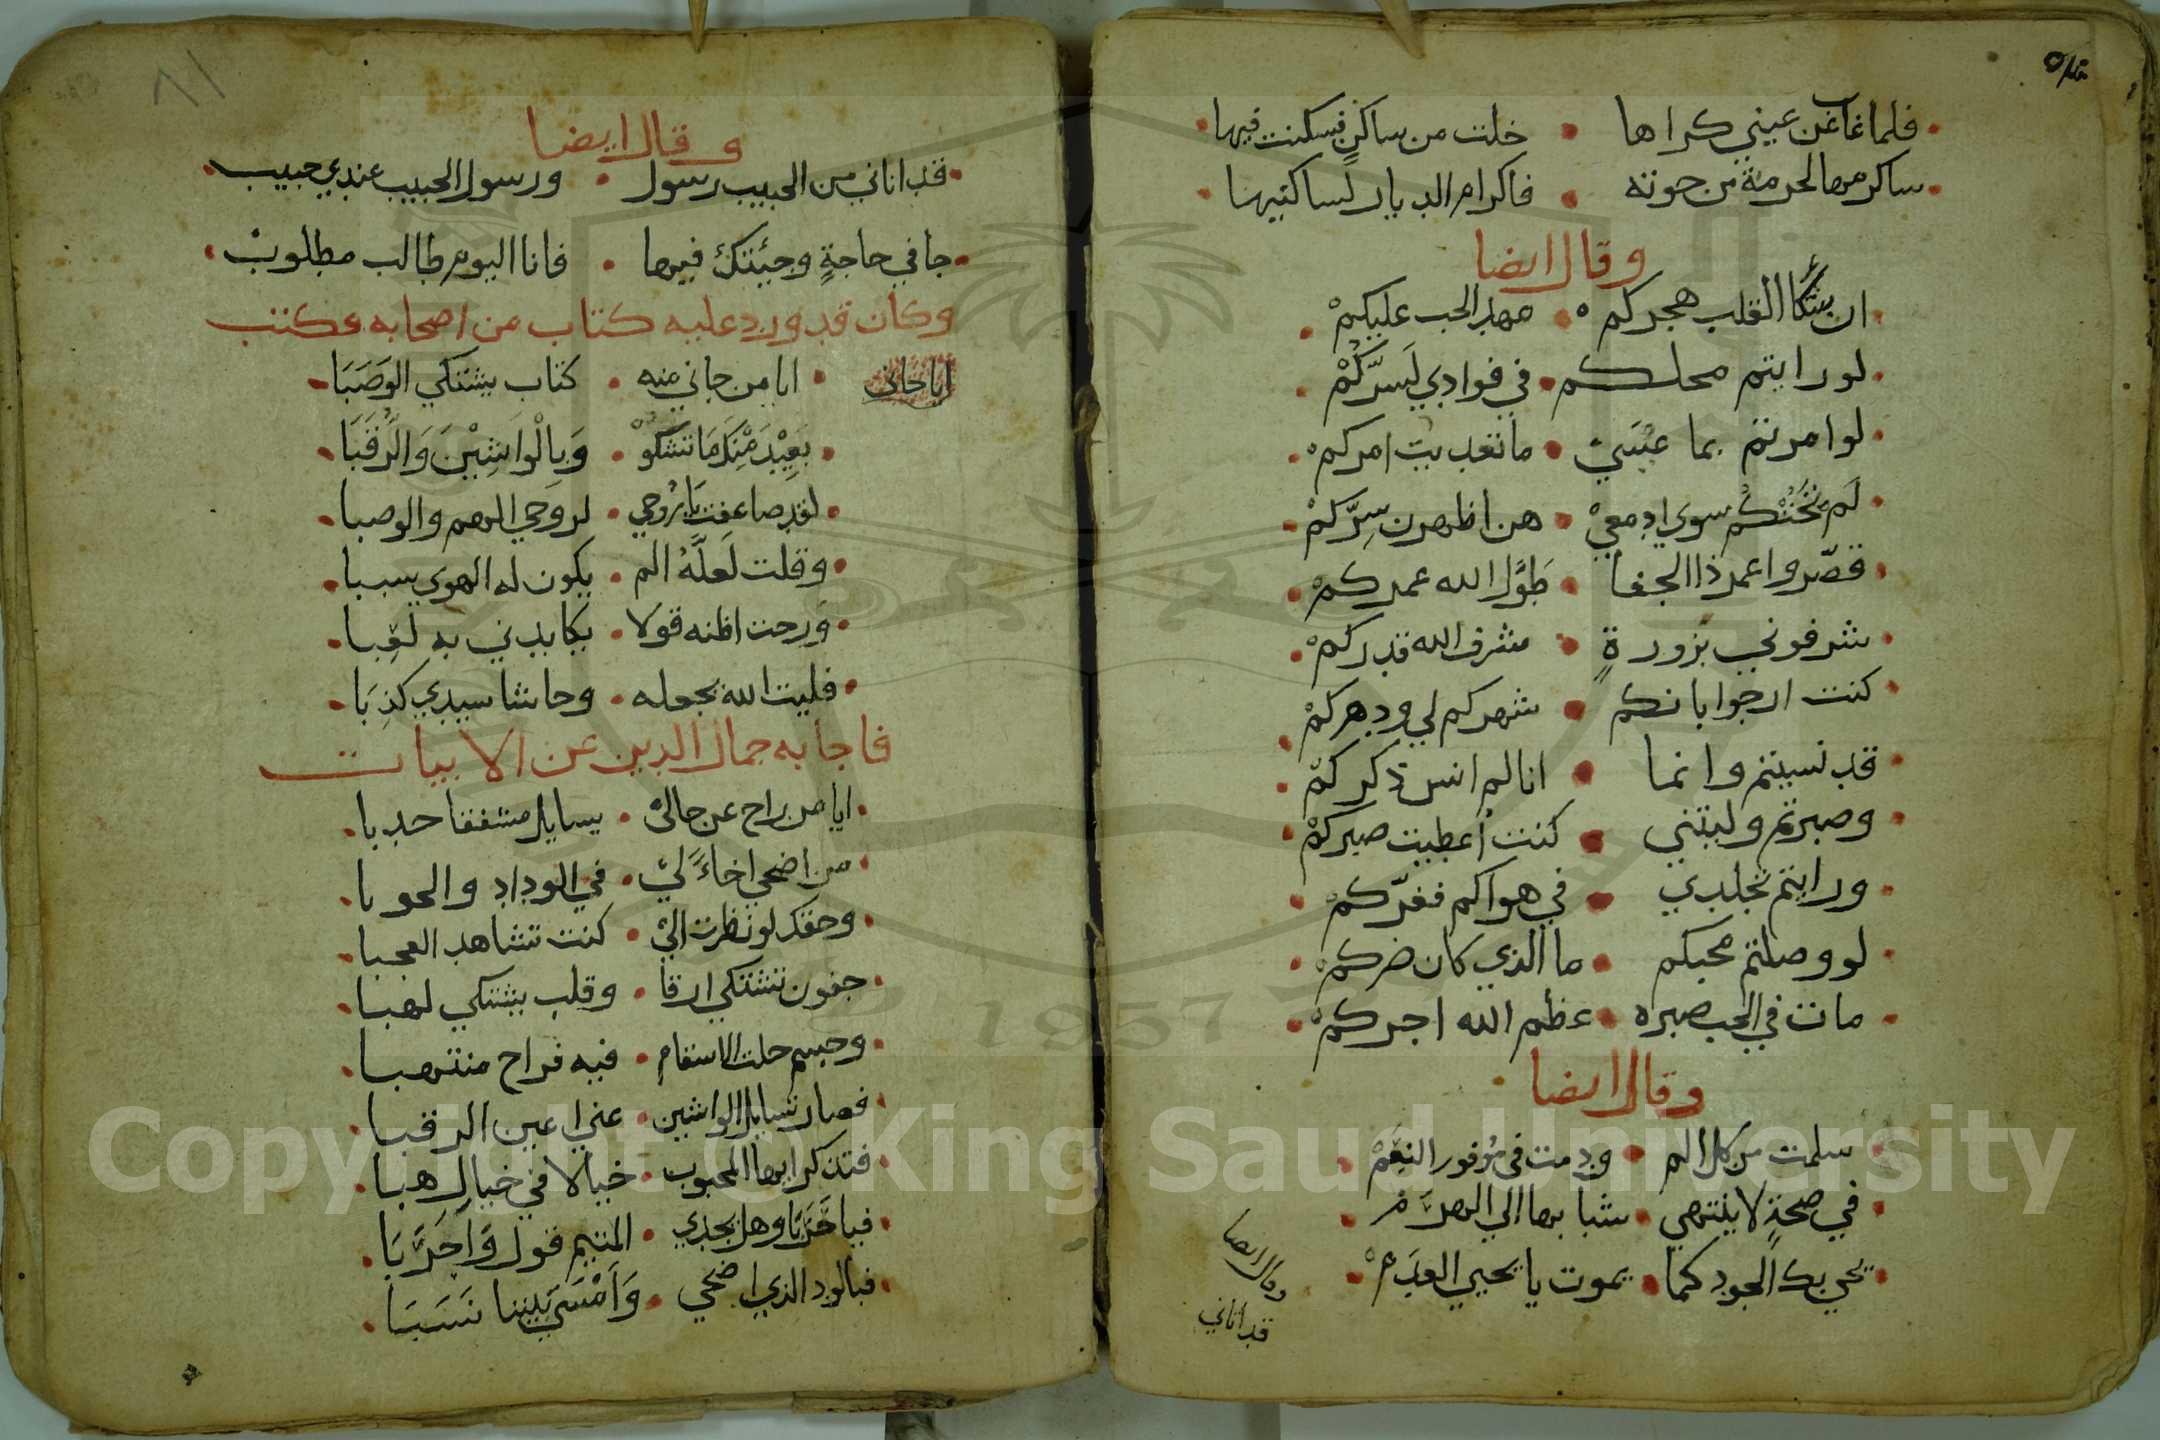 فلما غاب عن عيني كراها • خلت من ساكن فسكنت فيها
ساكرمها لحرمة من حوته • فاكرام الديار لساكنيها
وقال ايضا
ان شكا القلب هجركم • مهد الحب عليكم
لو رايتم محلكم • في فوادي لسركم
لو امرتم بما عسى • ما تعديت امركم
لم تخنكم سوى ادمعي • هن اظهرن سركم
قصروا عمر ذا الجفا • طول الله عمركم
شرفوني بزورة • شرف الله قدركم
كنت ارجوا بانكم • شهركم لي ودهركم
قد نسيتم وانما • انا لم انس ذكركم
وصبرتم وليتني • كنت أعطيت صبركم
ورايتم تجلدي • في هواكم فغركم
لو وصلتم محبكم • ما الذي كان ضركم
مات في الحب صبره • عظم الله اجركم
وقال ايضا
سلمت من كل الم • ودمت في موفور النعم
في صحة لا ينتهي • شبابها الي الهرم
يحي بك الجود كما • يموت يا يحيي العدم
وقال ايضا
قد اتاني
٨١
وقال ايضا
قد اتاني من الحبيب رسول • ورسول الحبيب عندي حبيب
جا في حاجة وجيتك فيها • فانا اليوم طالب مطلوب
وكان قد ورد عليه كتاب من اصحابه عكتب
ايا من جاني منه • كتاب يشتكي الوصبا
بعيد منك ما تشكو • وبالواشين والرقبا
لقد ضاعفت يا روحي • لروحي الهم والوصبا
وقلت لعله الم • يكون له الهوى سببا
ورحت اظنه قولا • يكابدني به لعبا
فليت الله يجعله • وحاشا سيدي كذبا
فاجابه جمال الدين عن الابيات
ايا من راح عن حالي • يسايل مشفقا حدبا
من اضحي اخاء لي • في الوداد والحوبا
وحقك لو نظرت الي • كنت تشاهد العجبا
جفون تشتكي ارقا • وقلب يشتكي لهبا
وجسم حلت الاسقام • فيه فراح منتهبا
فصار تسايل الواشين • عني اعين الرقبا
فتذكر ايها المحبوب • خيالا في خيال هبا
فيا حربا وهل يجدي • المتيم قول واحربا
فبالود الذي اضحي • وامسي بيننا نسبا